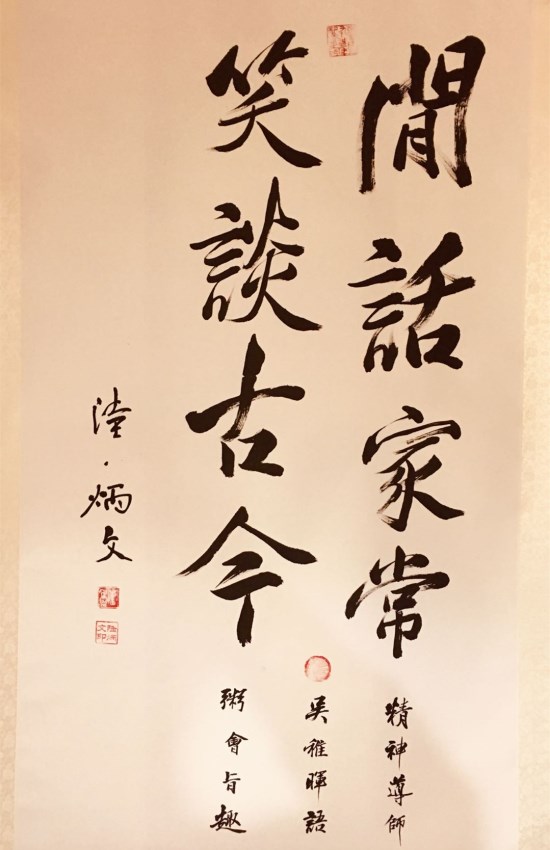 閒話家常
笑談古今
精神導師
吳稚暉語
粥會旨趣
陸·炳文